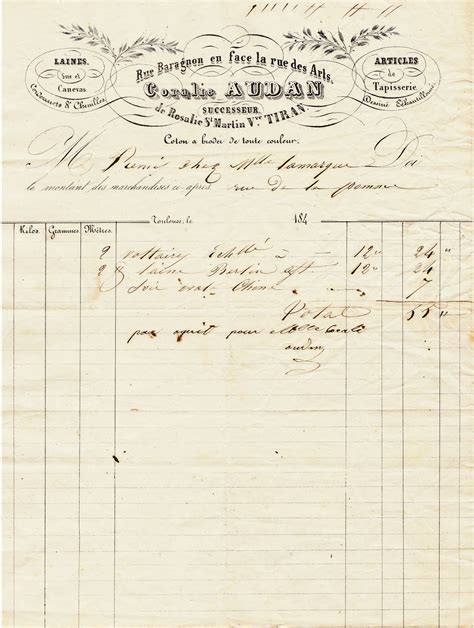 Rue Baragnon en face la rue des Arts,
LAINES,
Soie et
Canevas
Cordonnets & Chenilles.
ARTICLES
de
Tapisserie,
Dessins Échantillonnés
Coralie AUDAN
SUCCESSEUR
de Rosalie St Martin Vve TIRAN
Coton a broder de toute couleur.
M René chez Mlle Lamarque Doi
le montant des marchandises ci après rue de la pomme
Toulouse, le 184
Kilos. Grammes. Mètres.
2 voltaire Echllé à 12 " 24 "
2 " laine Berlin 12 " 24 "
Soie Chine 7 "
Total 55 "
par aquit pour Mlle Coralie
audan